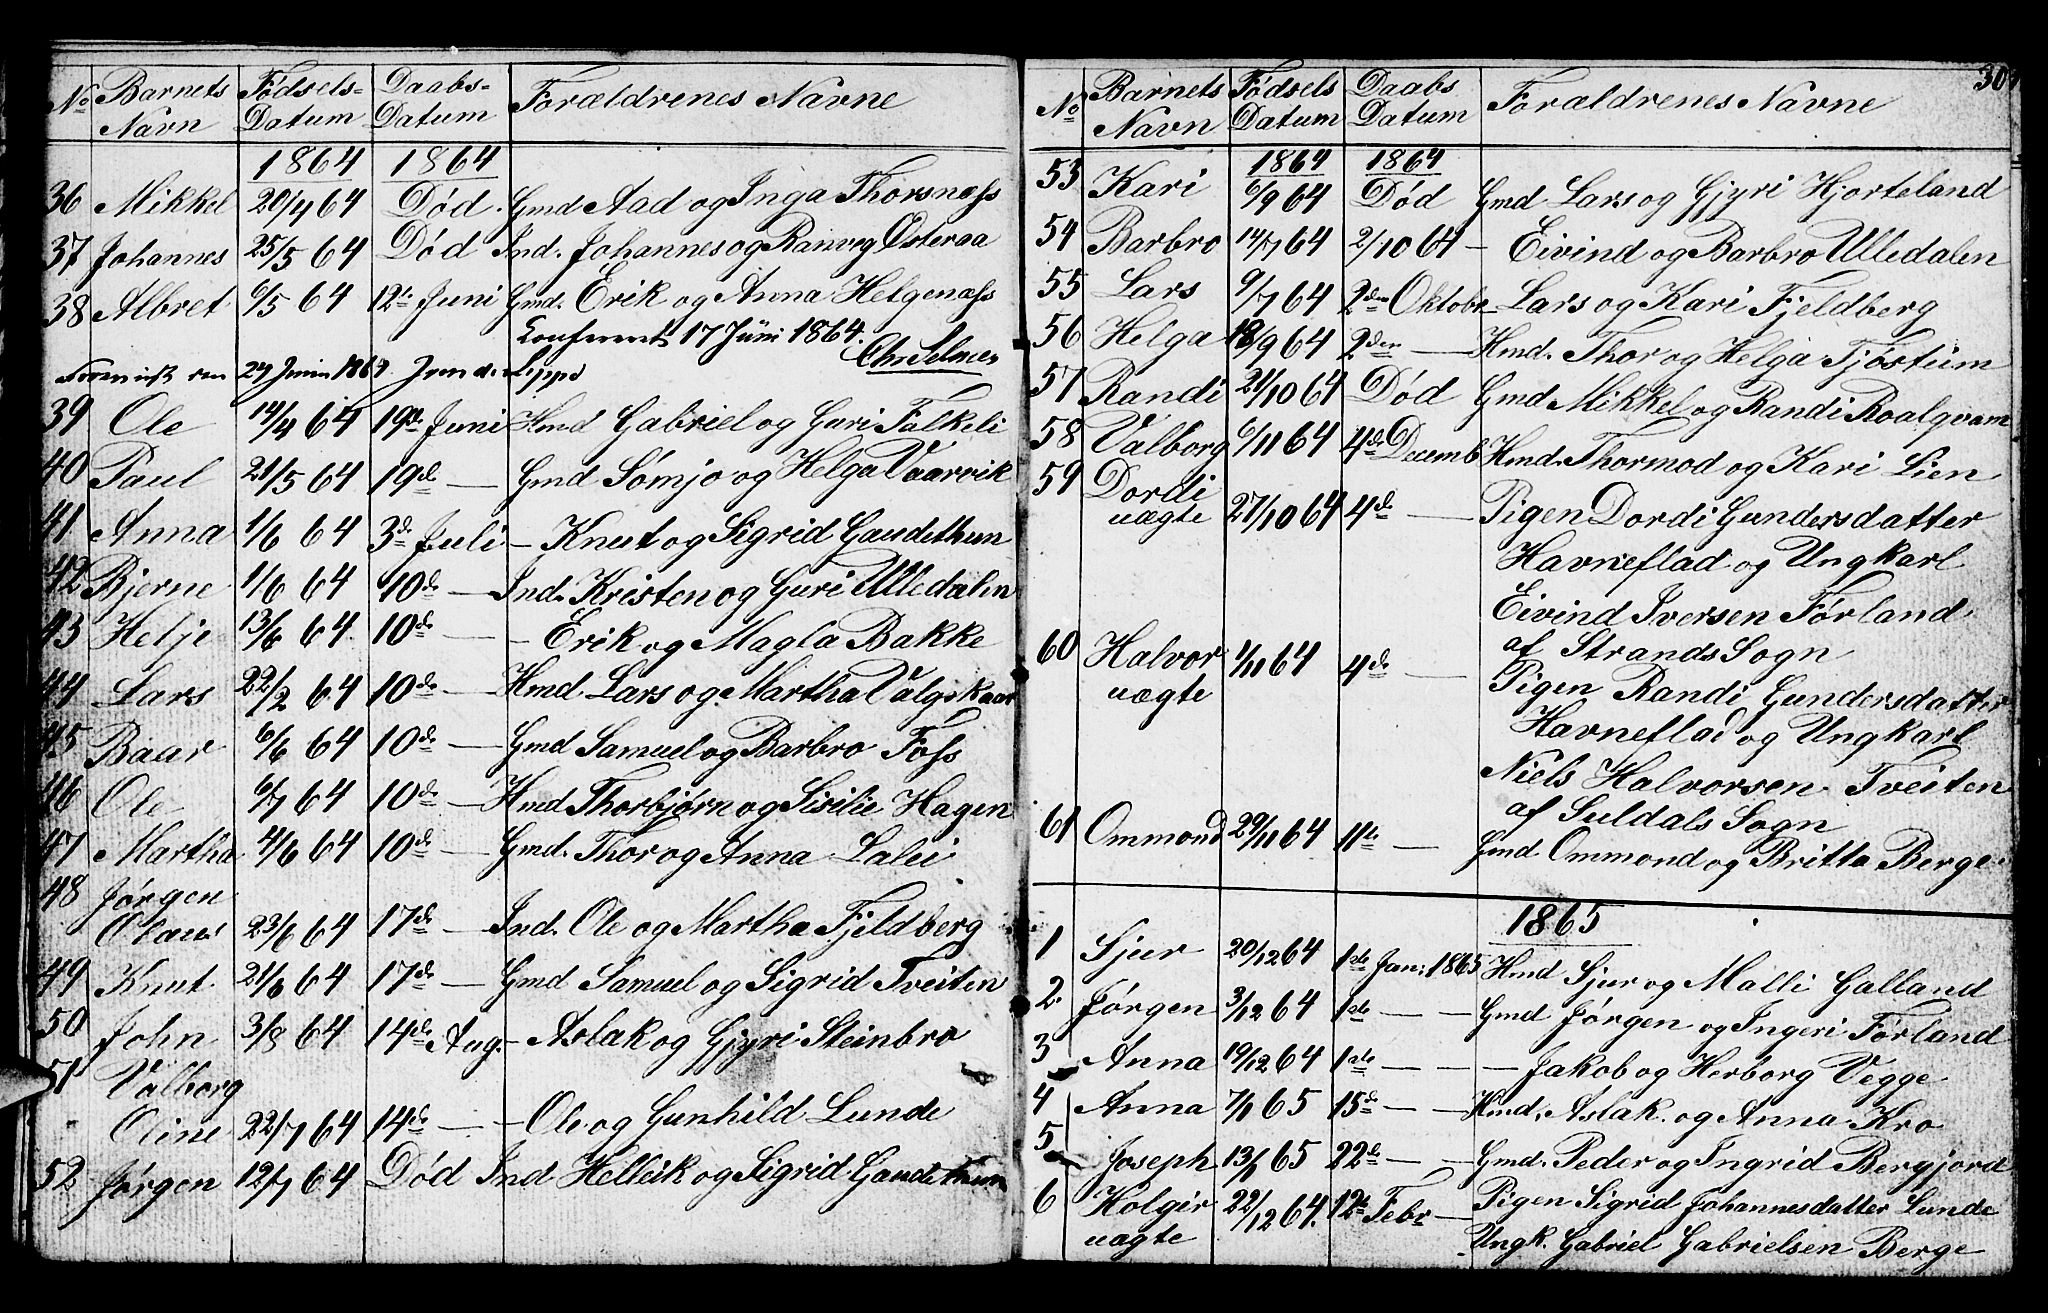 No Barnets Navn Fødsels= Datum Daabs= Datum Forældrenes Navne
1864 1864
36 Mikkel 20/4 64 Død Gmd Aad og Inga Thorsnæss
37 Johannes 25/5 64 Død Ind. Johannes og Ranveg Østeraa
38 Albret 6/5 64 12te Juni Gmd. Erik og Anna Helgenæss
17 Juni 1864.
Chr Selmer
39 Ole 14/4 64 19de Juni Hmd Gabriel og Guri Falkeli
40 Paul 21/5 64 19de — Gmd Sømjo og Helga Vaarvik
41 Anna 1/6 64 3de Juli — Knut og Sigrid Gaudethun
42 Bjerne 1/6 64 10de — Ind. Kristen og Guri Ulledalen
43 Helje 13/6 64 10de — — Erik og Magla Bakke
44 Lars 22/2 64 10de — Hmd. Lars og Martha Valgskaar
45 Baar 6/6 64 10de — Gmd Samuel og Barbro Foss
46 Ole 6/7 64 10de — Hmd Thorbjørn og Sisilie Hagen
47 Martha 4/6 64 10de — Gmd. Thor og Anna Lalei
48 Jørgen
Olaus 23/6 64 17de — Ind. Ole og Martha Fjeldberg
49 Knut 21/6 64 17de — Gmd Samuel og Sigrid Tveiten
50 John 3/8 64 14de Aug. — Aslak og Gjyri Steinbro
51 Valborg
Oline 22/7 64 14de — — Ole og Gunhild Lunde
52 Jørgen 12/7 64 Død Ind Helleik og Sigrid Gaudethun
30
No Barnets Navn Fødsels Datum Daabs Datum Forældrenes Navne
1864 1864
53 Kari 6/9 64 Død Gmd Lars og Gjyri Hjorteland
54 Barbro 14/7 64 2/10 64 — Eivind og Barbro Ulledalen
55 Lars 9/7 64 2den Oktobr — Lars og Kari Fjeldberg
56 Helga 18/9 64 2den — Hmd. Thor og Helga Tjøstum
57 Randi 21/10 64 Død Gmd Mikkel og Randi Roalqvam
58 Valborg 6/11 64 4de Decemb Hmd. Thormod og Kari Lien
59 Dordi
uægte 27/10 64 4de — Pigen Dordi Gundersdatter
Havneflad og Ungkarl
Eivind Iversen Førland
af Strands Sogn
60 Halvor 1/11 64 4de —
uægte Pigen Randi Gundersdatter
Havneflad og Ungkarl
Niels Halvorsen Tveiten
af Suldals Sogn
61 Ommond 29/11 64 11te — Gmd Ommond og Britta Berge
1865
1 Sjur 20/12 64 1ste Jan. 1865 Hmd Sjur og Malli Galland
2 Jørgen 3/12 64 1ste — — Gmd Jørgen og Ingeri Førland
3 Anna 19/12 64 1ste — — — Jakob og Herborg Vegge
4 Anna 7/1 65 15de — — Hmd. Aslak og Anna Kro
5 Joseph 13/1 65 22de — — Gmd. Peder og Ingrid Bergjord
6 Holgir 22/12 64. 12te Febr — Pigen Sigrid Johannesdatter Lunde
uægte Ungk. Gabriel Gabrielsen Berge